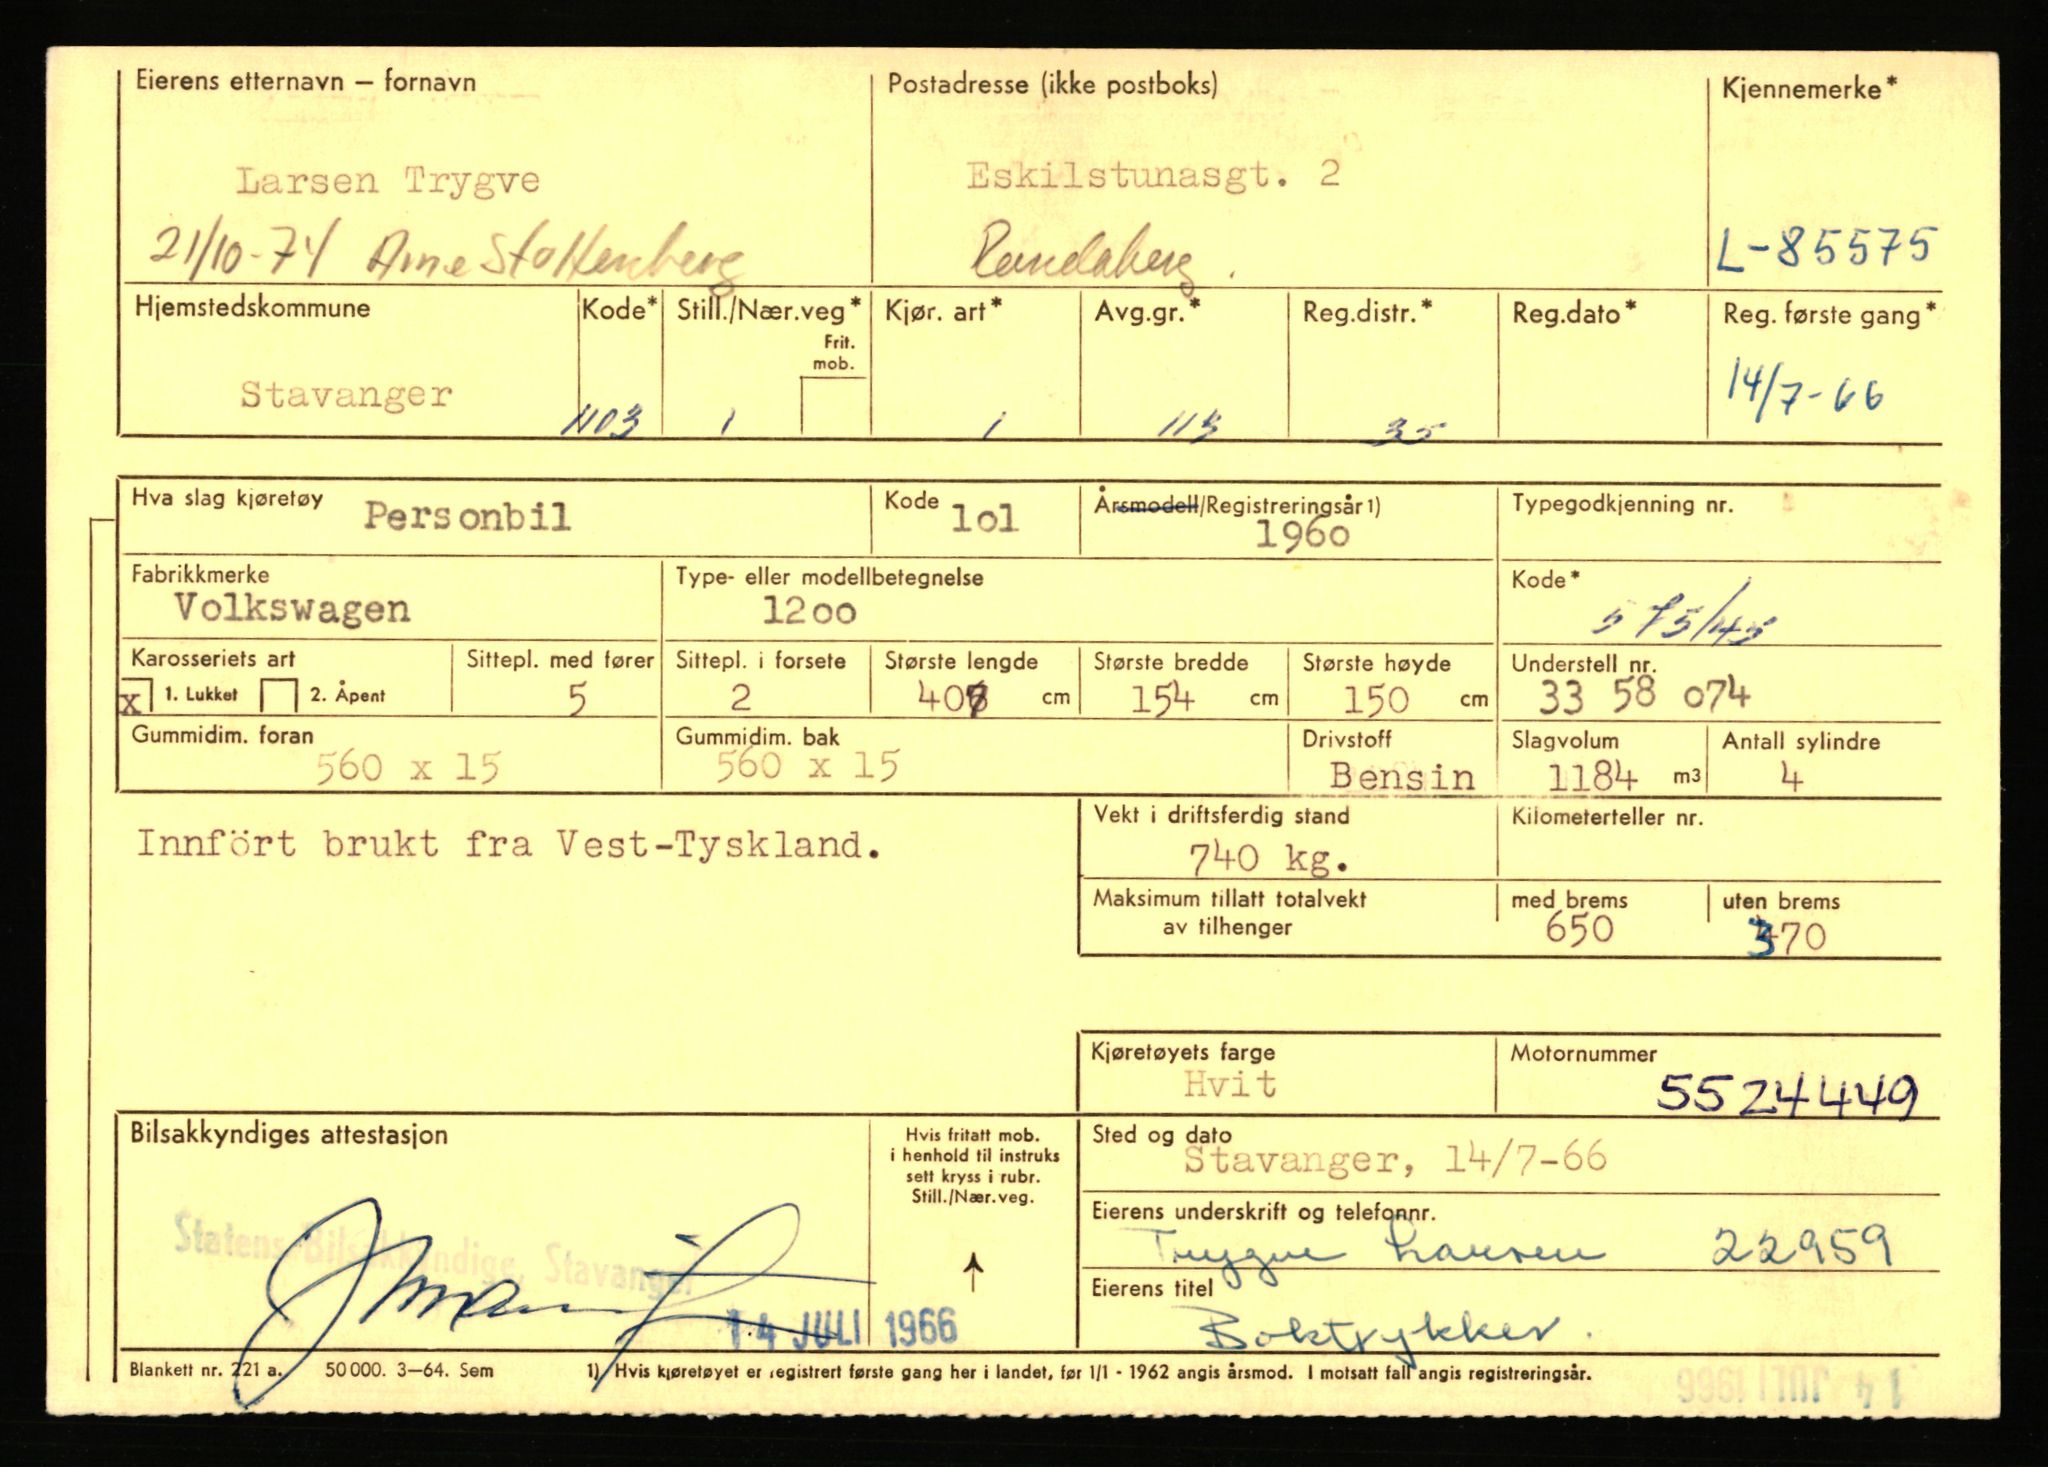 Eierens etternavn – fornavn Postadresse (ikke postboks) Kjennemerke*
Larsen Trygve Eskilstunasgt. 2
21/10-74 Arne Stoltenberg Randaberg. L-85575
Hjemstedskommune Kode* Still./Nær.veg* Kjør. art* Avg.gr.* Reg.distr.* Reg.dato* Reg. første gang*
Frit.
mob.
Stavanger 1103 1 1 113 35 14/7-66
Hva slag kjøretøy Personbil Kode lol Årsmodell/Registreringsår 1) 196o Typegodkjenning nr.
Fabrikkmerke Type- eller modellbetegnelse Kode*
Volkswagen 12oo 575/145
Karosseriets art Sittepl. med fører Sittepl. i forsete Største lengde Største bredde Største høyde Understell nr.
x 1. Lukket 2. Åpent 5 2 407 cm 154 cm 150 cm 33 58 074
Gummidim. foran Gummidim. bak Drivstoff Slagvolum Antall sylindre
560 x 15 560 x 15 Bensin 1184 m3 4
Vekt i driftsferdig stand Kilometerteller nr.
Innfört brukt fra Vest-Tyskland. 740 kg.
Maksimum tillatt totalvekt med brems uten brems
av tilhenger 650 370
Kjøretøyets farge Motornummer
Hvit 5524449
Bilsakkyndiges attestasjon Hvis fritatt mob. Sted og dato
i henhold til instruks Stavanger, 14/7-66
sett kryss i rubr.
Still./Nær.veg. Eierens underskrift og telefonnr.
Statens Bilsakkyndige, Stavanger Trygve Larsen 22959
Eierens titel
14 JULI 1966 Boktrykker.
Blankett nr. 221 a. 50 000. 3–64. Sem 1) Hvis kjøretøyet er registrert første gang her i landet, før 1/1 - 1962 angis årsmod. I motsatt fall angis registreringsår.
14 JULI 1966